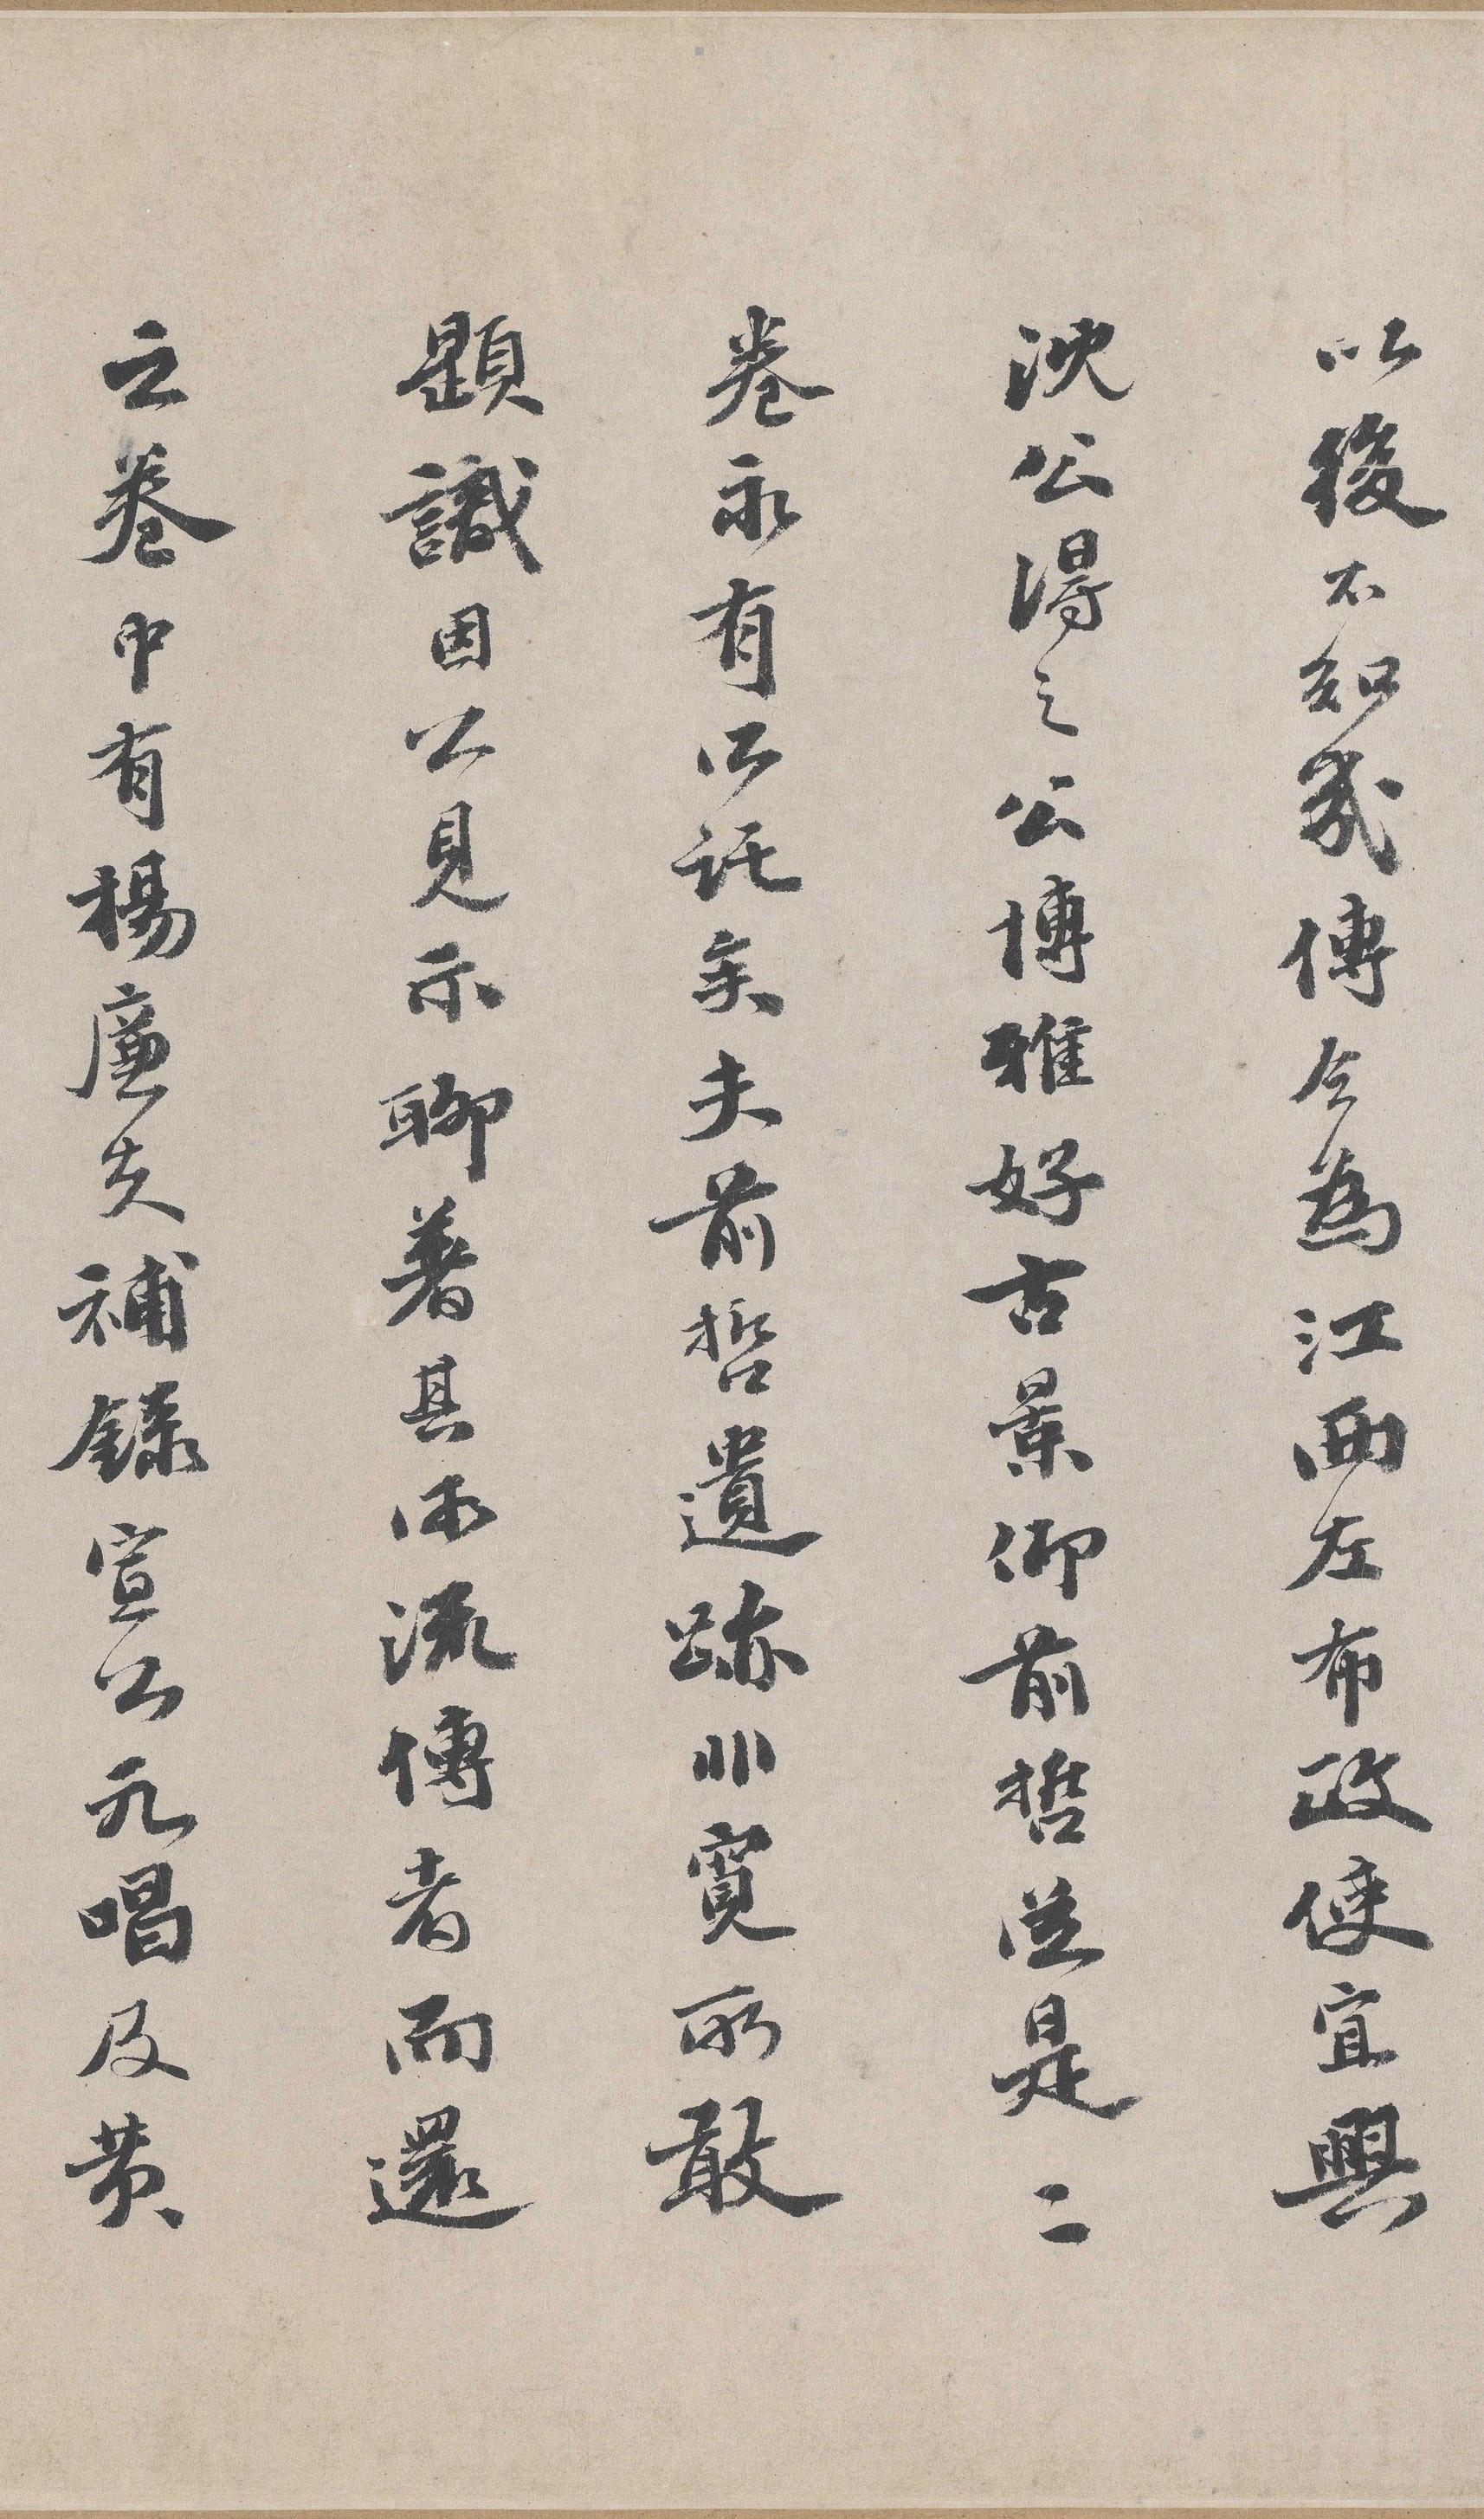 以後不知幾傳今為江西左布政使宜興
沈公得之公博雅好古景仰前哲從是二
卷永有所託矣夫前哲遺跡非寬所敢
題識因公見示聊著其所流傳者而還
之卷中有楊廉夫補錄宣公元唱及黃